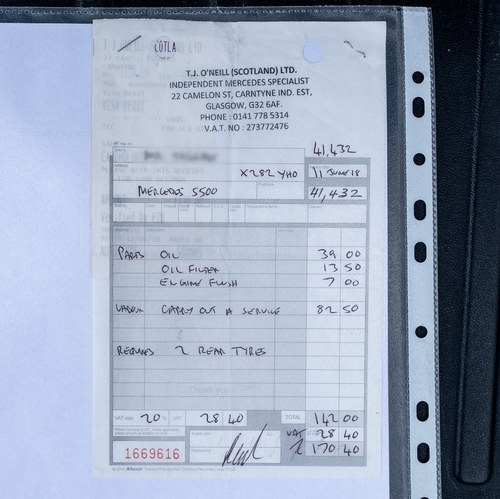 COTLA
T.J. O'NEILL (SCOTLAND) LTD.
INDEPENDENT MERCEDES SPECIALIST
22 CAMELON ST, CARNTYNE IND. EST,
GLASGOW, G32 6AF.
PHONE : 0141 778 5314
V.A.T. NO : 273772476
41,432
X282 YHO 11 JUNE 18
MERCEDES S500 41,432
PARTS OIL 39 00
OIL FILTER 13 50
ENGINE FLUSH 7 00
LABOUR CARRY OUT A SERVICE 82 50
REQUIRES 2 REAR TYRES
VAT rate 20 % VAT 28 40 TOTAL 142 00
VAT 28 40
£ 170 40
1669616